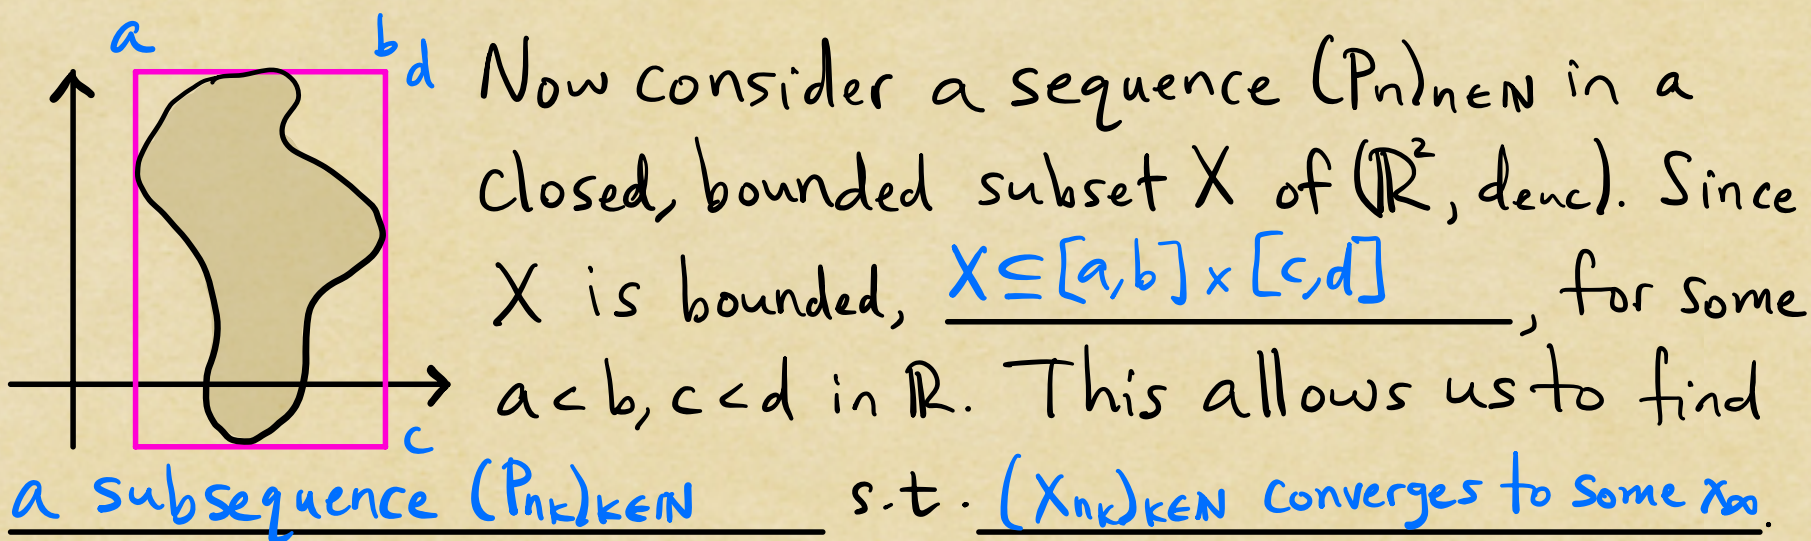 a b
d
Now consider a sequence (Pn)n∈ℕ in a
closed, bounded subset X of (ℝ², deuc). Since
X is bounded, X⊆[a,b]×[c,d], for some
a<b, c<d in ℝ. This allows us to find
c
a subsequence (Pnk)k∈ℕ s.t. (Xnk)k∈ℕ converges to some x∞.